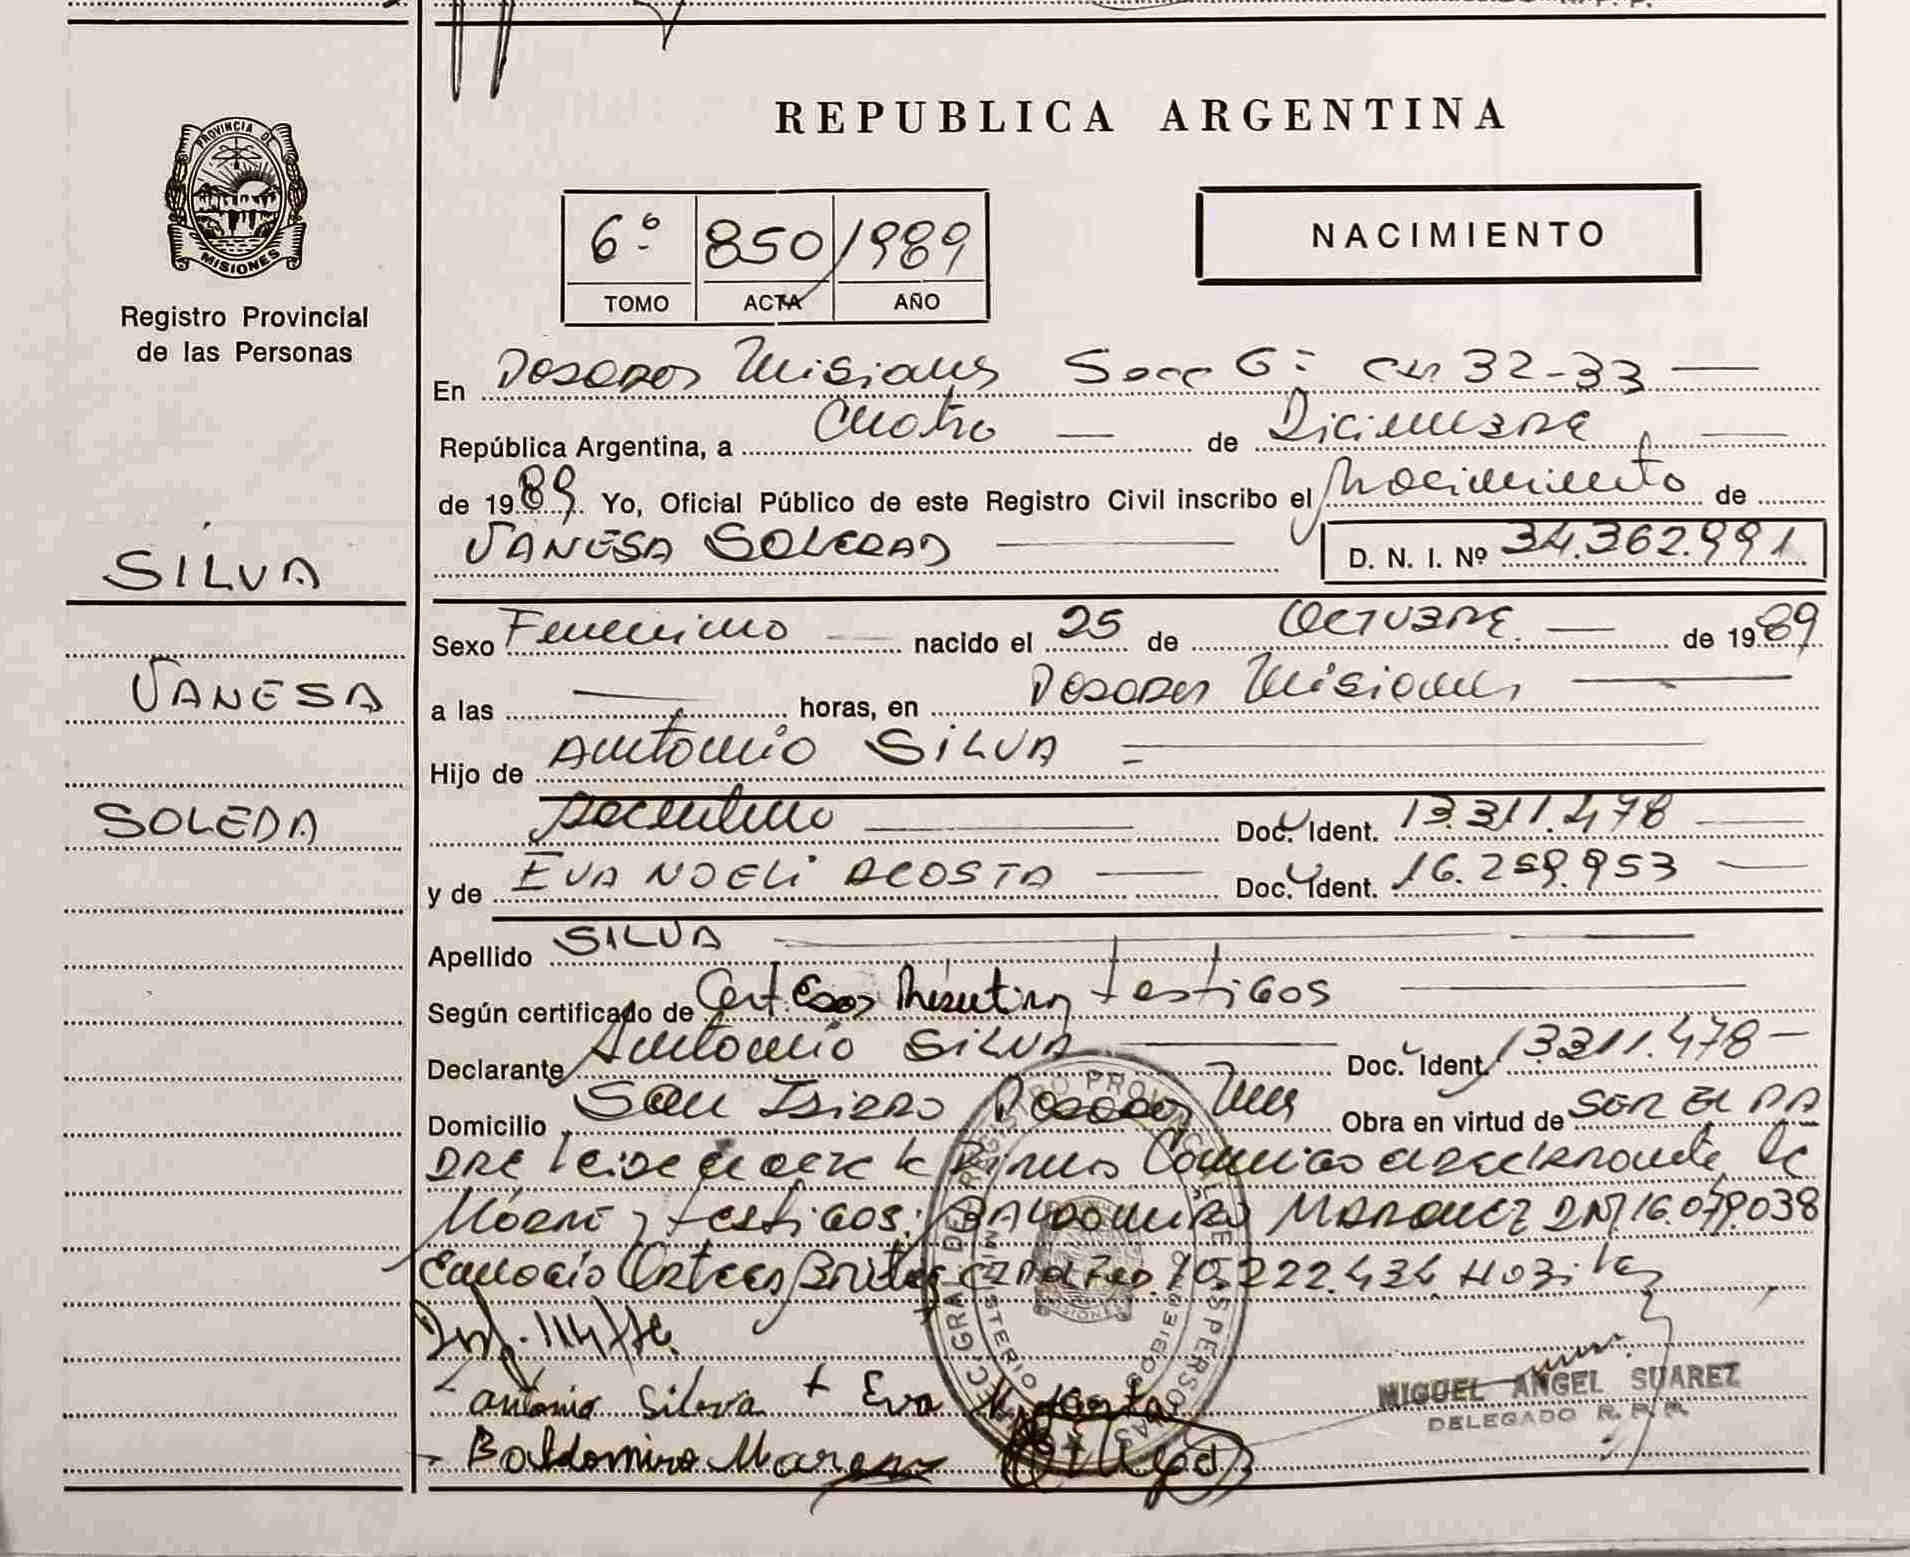 REPUBLICA ARGENTINA
PROVINCIA DE
MISIONES
Registro Provincial
de las Personas
6º 850 1989
TOMO ACTA AÑO
NACIMIENTO
En Posadas Misiones Secc 6º 32-33
República Argentina, a Cuatro de Diciembre
de 1989 Yo, Oficial Público de este Registro Civil inscribo el Nacimiento de
VANESA SOLEDAD D. N. I. Nº 34.362.991
SILVA
VANESA
SOLEDA
Sexo Femenino nacido el 25 de OCTUBRE de 1989
a las horas, en Posadas Misiones
Hijo de Antonio SILVA
Doc. Ident. 13.311.478
y de EVA NOELI ACOSTA Doc. Ident. 16.259.953
Apellido SILVA
Según certificado de testigos
Declarante Antonio SILVA Doc. Ident. 13311.478
Domicilio San Isidro Posadas Mnes Obra en virtud de SER EL PA
DRE
Madre y testigos: BALDOMIRO MARQUEZ DNI 16.079.038
10.222.434
Antonio Silva + Eva N. Acosta
Baldomiro
MIGUEL ANGEL SUAREZ
DELEGADO R. P. P.